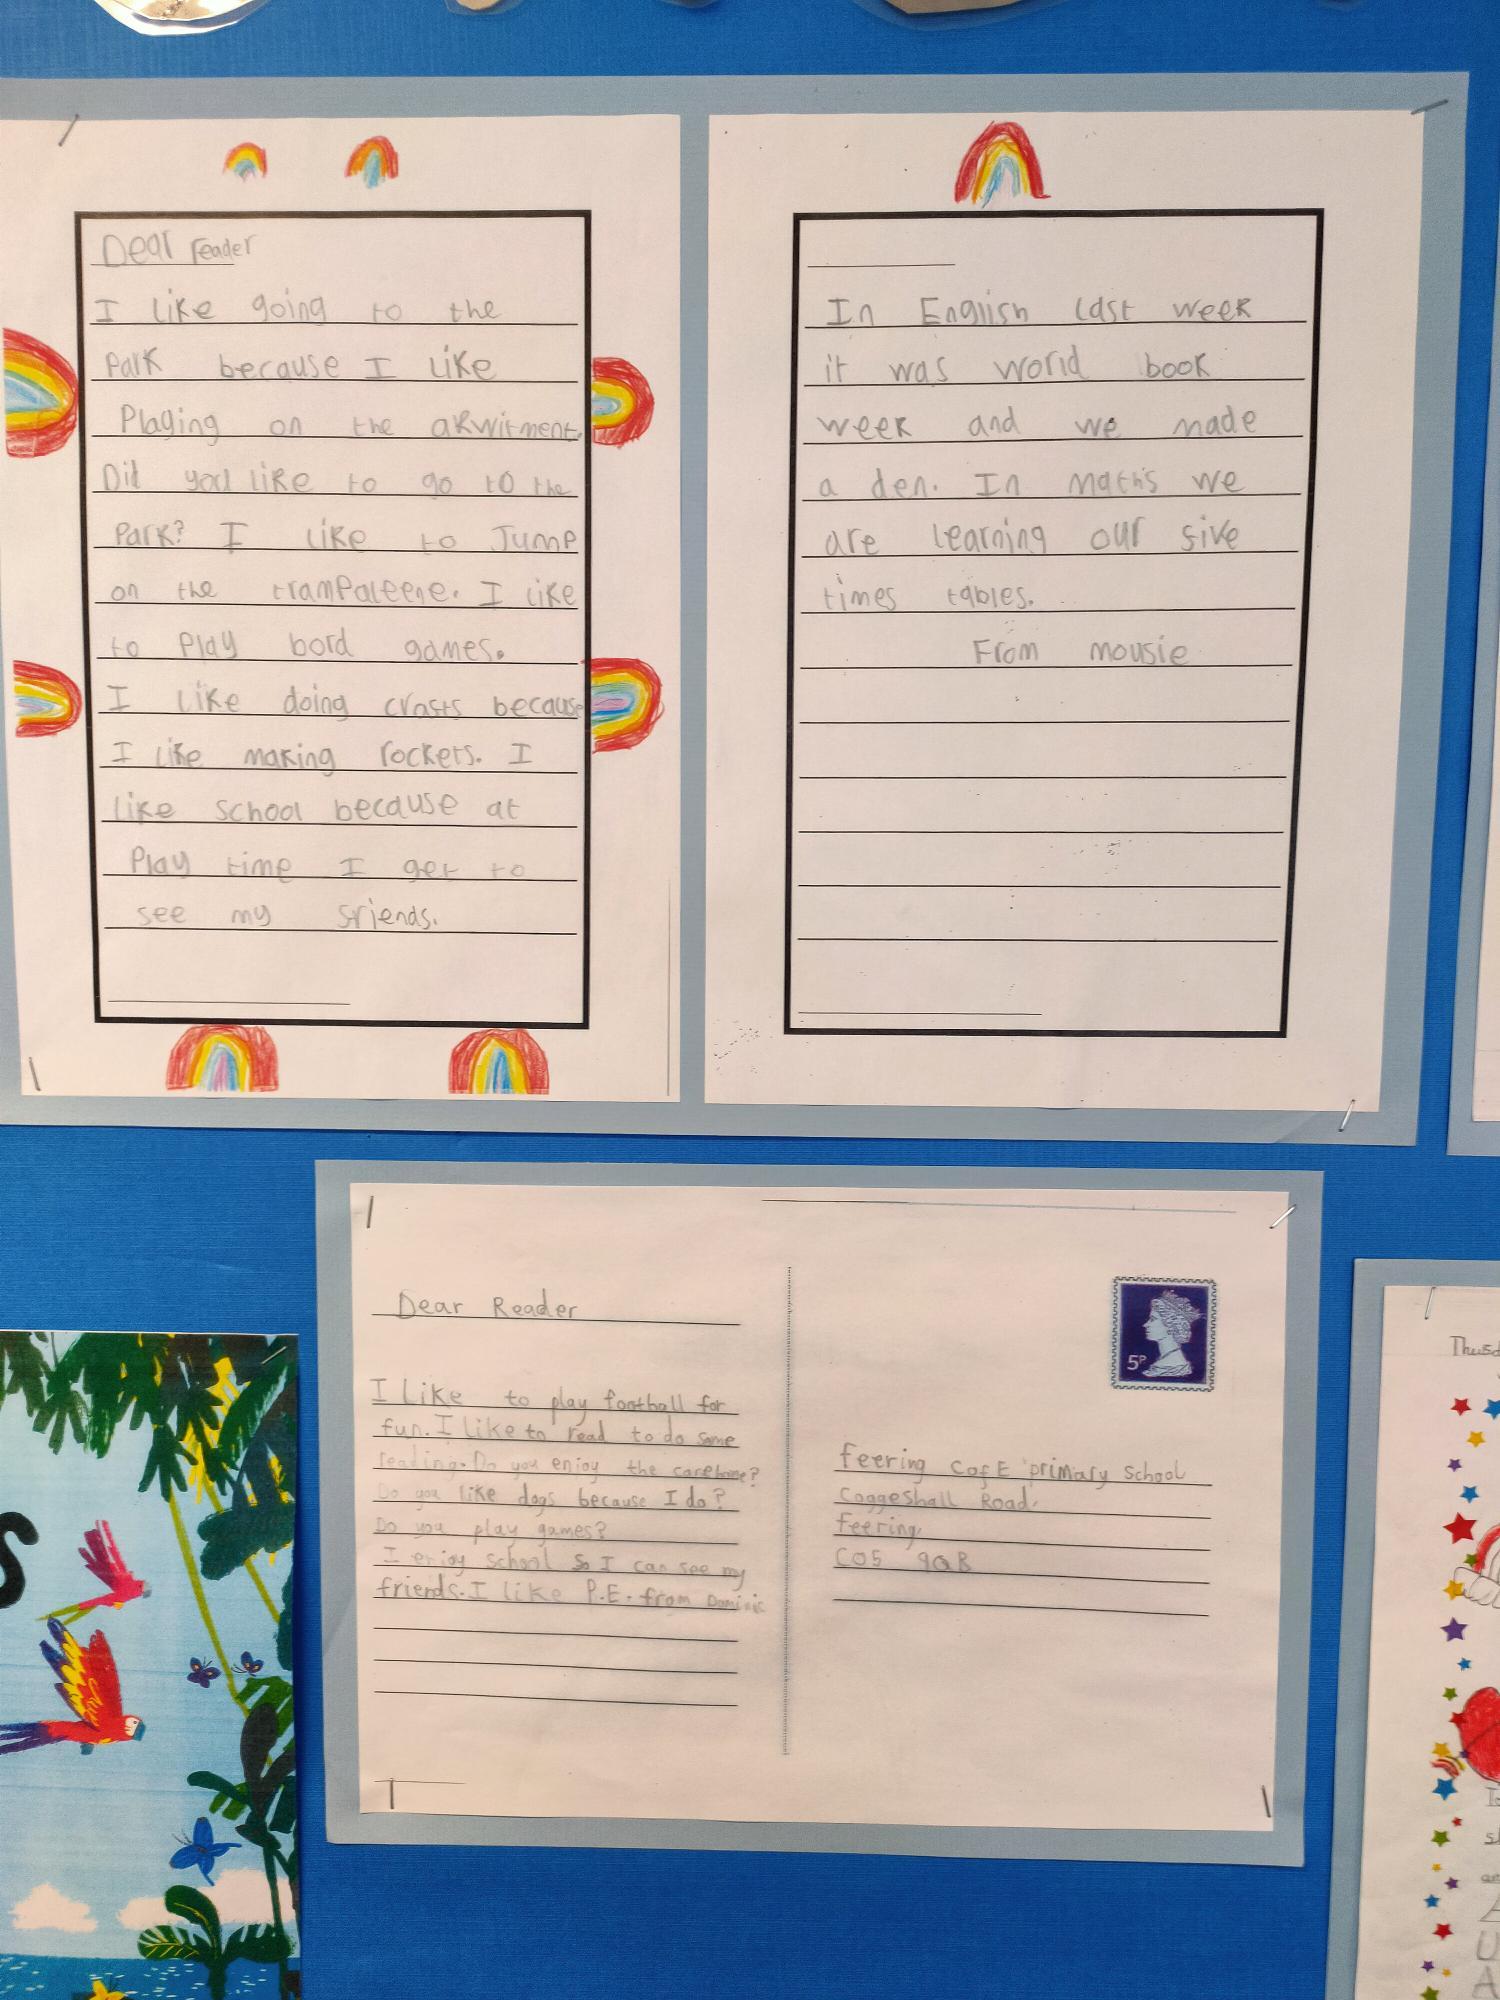 Dear reader
I like going to the
Park because I like
Playing on the akwitment.
Did you like to go to the
Park? I like to Jump
on the trampaleene. I like
to Play bord games.
I like doing crasts because
I like making rockets. I
like school because at
Play time I get to
see my sriends.
In English last week
it was world book
week and we made
a den. In maths we
are learning our sive
times tables.
From mousie
Dear Reader
I like to play football for
fun. I like to read to do some
reading. Do you enjoy the carehome?
Do you like dogs because I do?
Do you play games?
I enjoy school so I can see my
friends. I like P.E. from Dominic
5P
feering C of E primary school
Coggeshall Road,
feering,
CO5 9QB
S